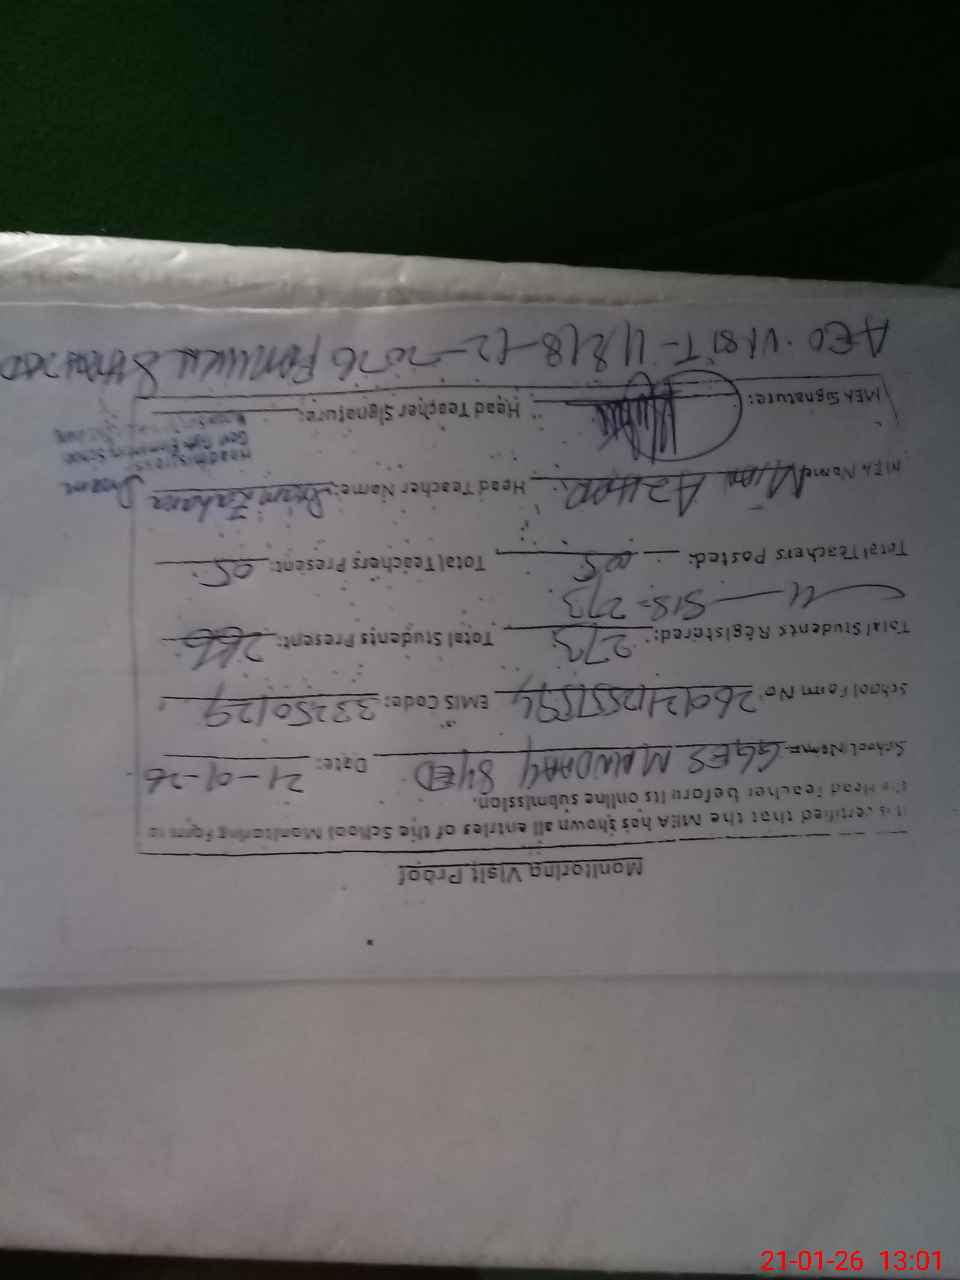 Monitoring Visit Proof
It is certified that the MEA has shown all entries of the School Monitoring Form to
the Head Teacher before its online submission.
School Name: GGES MANDAHY SYED Date: 21-01-26
School Form No: EMIS Code: 33250129
Total Students Registered: 273 Total Students Present: 266
SIS=273
Total Teachers Posted: 05 Total Teachers Present: 05
MEA Name: Mian AZHAR Head Teacher Name: Zahara
Headmistress
Govt. Girls Elementary School
MEA Signature: Head Teacher Signature:
AEO. VISIT-
21-01-26 13:01